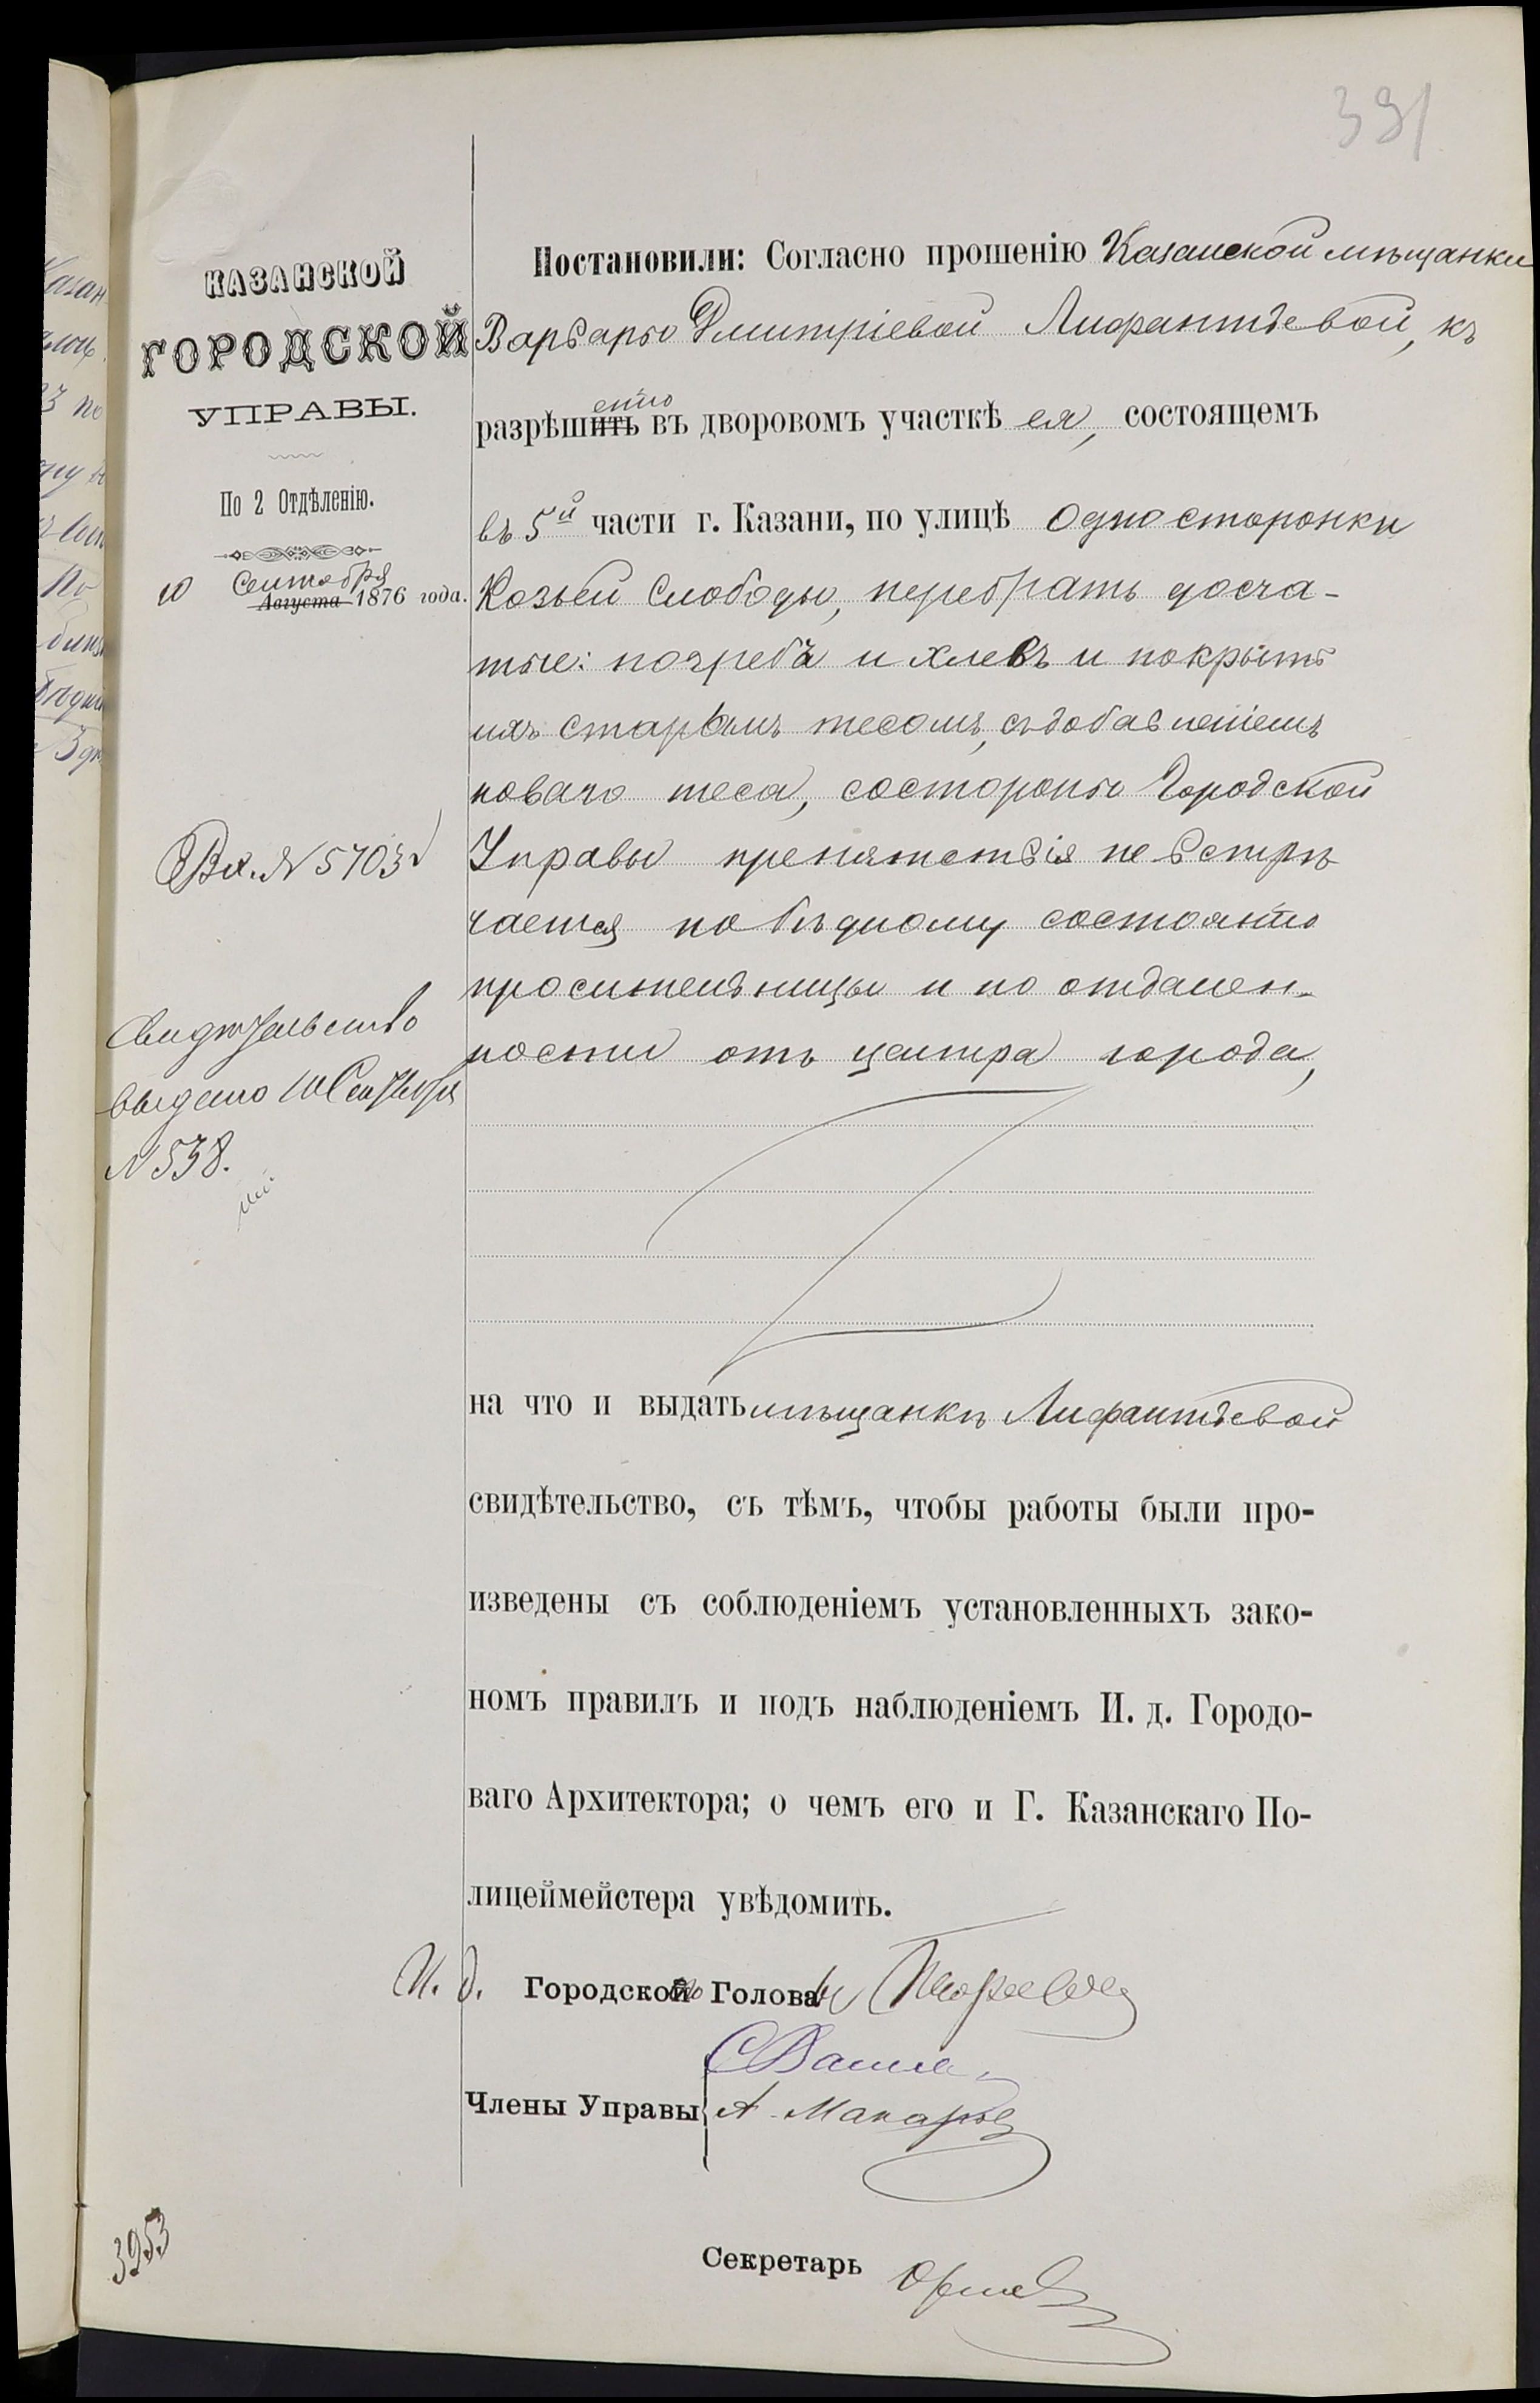 391
КАЗАНСКОЙ
ГОРОДСКОЙ
УПРАВЫ.
По 2 Отдѣленію.
10 Сентября
Августа 1876 года.
Вх. № 5703
Свидѣтельство
выдано 10 Сентября
№ 538.
Постановили: Согласно прошенію Казанской мѣщанки
Варвары Дмитріевой Лифантьевой, къ
разрѣшить енію въ дворовомъ участкѣ ея, состоящемъ
въ 5й части г. Казани, по улицѣ Односторонки
Козьей Слободы, перебрать досча-
тые: погребъ и хлевъ и покрыть
ихъ старымъ тесомъ, съ добавленіемъ
новаго теса, состороны Городской
Управы препятствія не встрѣ
чается по бѣдному состоянію
просительницы и по отдален-
ности отъ центра города,
на что и выдать мѣщанкѣ Лифантьевой
свидѣтельство, съ тѣмъ, чтобы работы были про-
изведены съ соблюденіемъ установленныхъ зако-
номъ правилъ и подъ наблюденіемъ И. д. Городо-
ваго Архитектора; о чемъ его и Г. Казанскаго По-
лицеймейстера увѣдомить.
И. д. Городской Голова
Члены Управы А. Макаровъ
Секретарь
3953